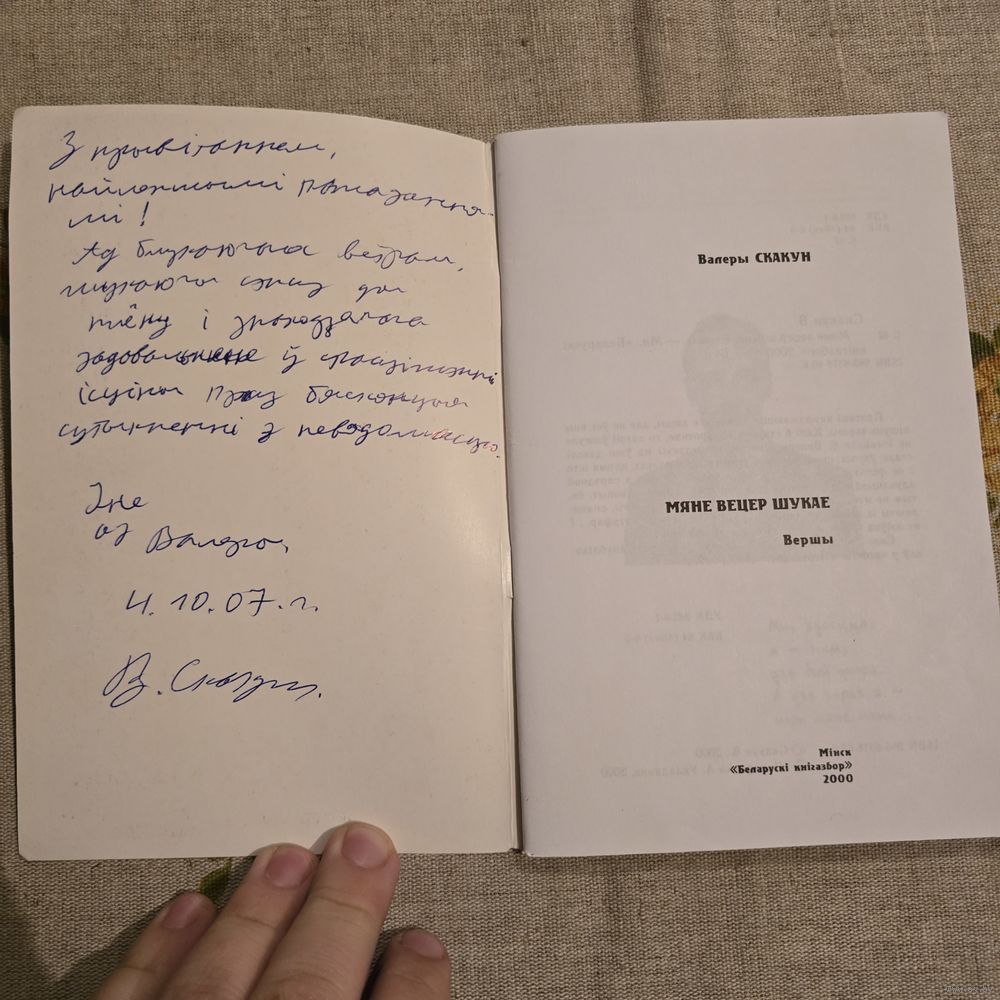 З прывітаннем,
найлепшымі пажадання-
мі!
Ад блукаючага ветрам,
шукаючага сэнсу для
тлёну і знаходзячага
задавальненне ў
ісціны праз бясконцыя
сутыкненні з невядомасцю.
Іне
ад Валерыя,
4.10.07.г.
В. Скакун.
Валеры СКАКУН
МЯНЕ ВЕЦЕР ШУКАЕ
Вершы
Мінск
«Беларускі кнігазбор»
2000